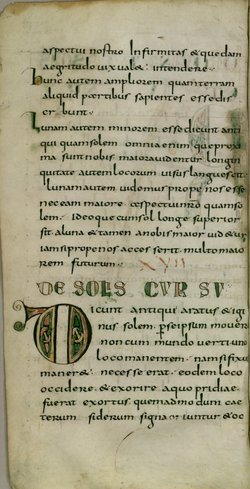 aspectui nostro Infirmitas & quedam
aegritudo uix uale& intendere
hunc autem ampliorem quam terram
aliquid p&ribus sapientes esse dis
er bunt
Lunam autem minorem esse dicunt anti
qui quam solem omnia enim que proxi
ma sunt nobis maiora uidentur longin
quitate autem locorum uisus languescit
lunam autem uidemus prope nos esse
nec eam maiore aspectui nro quam so
lem ideo que cum sol longe superior
sit aluna & tamen anobis maior uideatur
iam si prope nos acces serit multo maio
rem futurum XVII
DE SOLIS CVRSU
Dicunt antiqui aratus & igi
nus solem per se ipsum moueri
non cum mundo uerti uno
loco manentem nam si fixus
maner& necesse erat eodem loco
occidere & exorire a quo pridiae
fuerat exortus quemadmodum cae
terum siderum signa oriuntur & oc